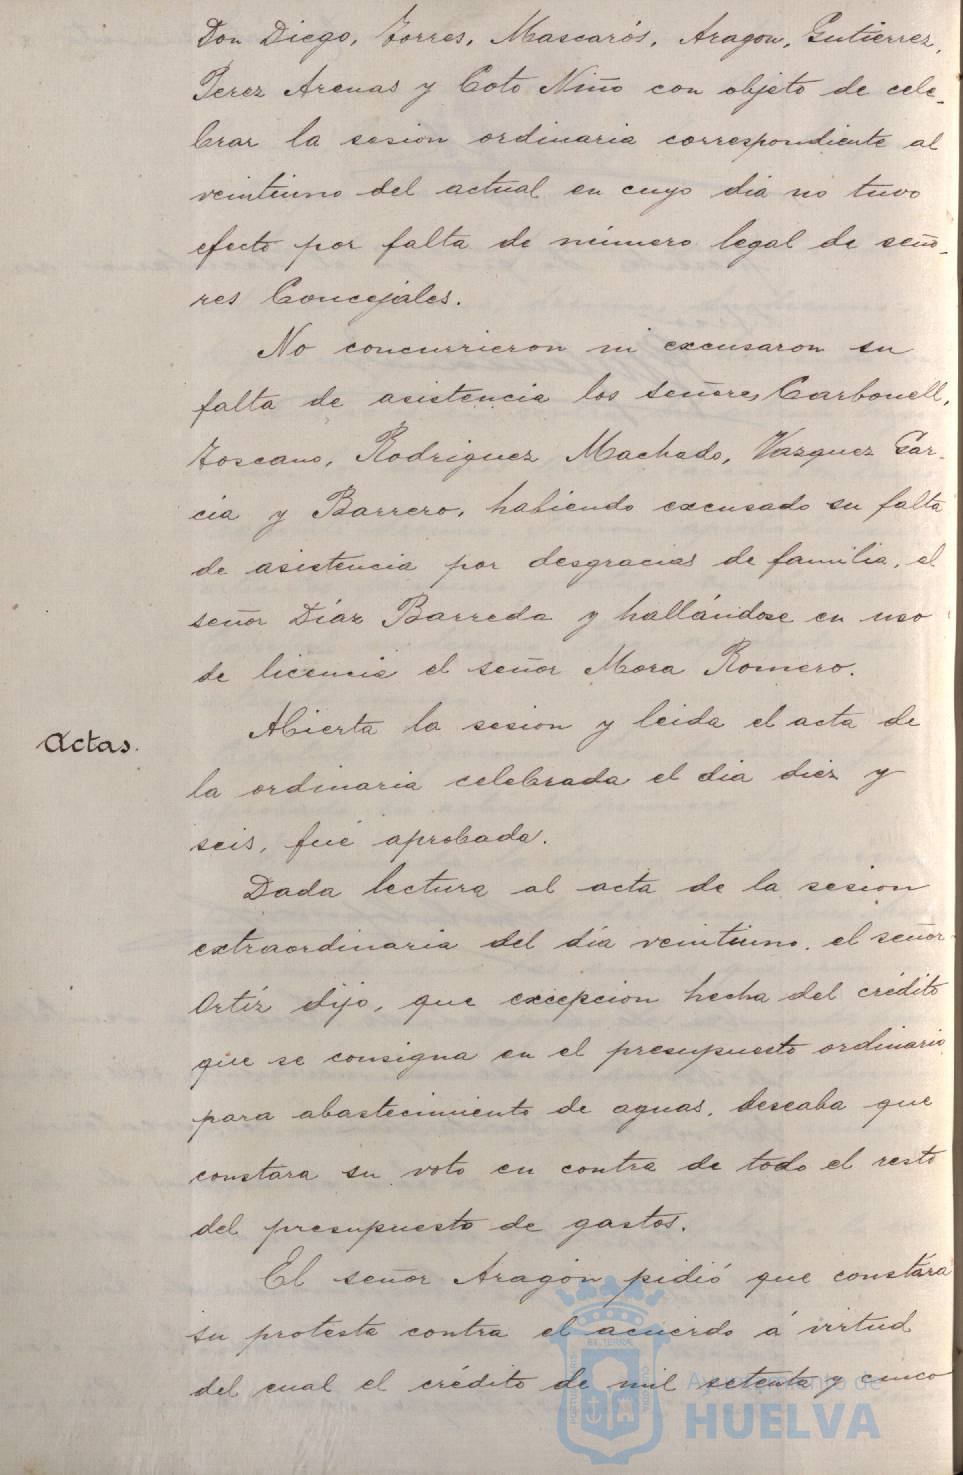 Don Diego, Torres, Mascarós, Aragon, Gutierrez,
Perez Arenas y Coto Niño con objeto de cele-
brar la sesion ordinaria correspondiente al
veintiuno del actual en cuyo dia no tuvo
efecto por falta de número legal de seño-
res Concejales.
No concurrieron ni excusaron su
falta de asistencia los señores Carbonell,
Toscano, Rodriguez Machado, Vazquez Gar-
cia y Barrero, habiendo excusado su falta
de asistencia por desgracias de familia, el
señor Díaz Barreda y hallándose en uso
de licencia el señor Mora Romero.
Actas.
Abierta la sesion y leida el acta de
la ordinaria celebrada el dia diez y
seis, fué aprobada.
Dada lectura al acta de la sesion
extraordinaria del día veintiuno, el señor
Ortíz dijo, que excepcion hecha del crédito
que se consigna en el presupuesto ordinario
para abastecimiento de aguas, deseaba que
constara su voto en contra de todo el resto
del presupuesto de gastos.
El señor Aragón pidió que constára
su protesta contra el acuerdo á virtud
del cual el crédito de mil setenta y cinco
Ayuntamiento de
HUELVA